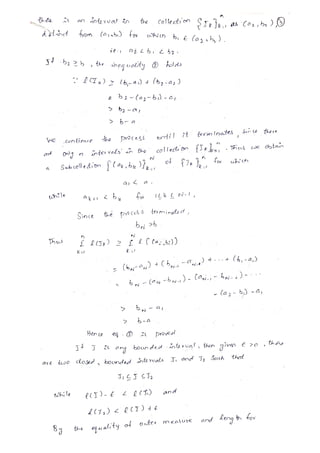 there is an interval in the collection {I_k}ⁿ_{k=1} as (a₂, b₂) ③
distinct from (a₁,b₁) for which b₁ ∈ (a₂, b₂).
i.e., a₂ < b₁ < b₂.
If b₂ ≥ b, the inequality ② holds
∵ ℓ(I_k) ≥ (b₁-a₁) + (b₂-a₂)
= b₂-(a₂-b₁)-a₁
> b₂-a₁
> b-a
We continue the process until it terminates, since there
are only n intervals in the collection {I_k}ⁿ_{k=1}. Thus we obtain
a subcollection {(a_k, b_k)}ᴺ_{k=1} of {I_k}ⁿ_{k=1} for which
a₁ < a.
while a_{k+1} < b_k for 1 ≤ k ≤ N-1,
Since the process terminated,
b_N > b.
Thus Σⁿ_{k=1} ℓ(I_k) ≥ Σᴺ_{k=1} ℓ[(a_k, b_k)]
= (b_N-a_N) + (b_{N-1}-a_{N-1}) + ... + (b₁-a₁)
= b_N-(a_N-b_{N-1})-(a_{N-1}-b_{N-2})-...
-(a₂-b₁)-a₁
> b_N-a₁
> b-a
Hence eq. ② is proved
If I is any bounded interval, then given ε>0, there
are two closed, bounded intervals J₁ and J₂ such that
J₁ ⊆ I ⊆ J₂
while ℓ(I)-ε < ℓ(J₁) and
ℓ(J₂) < ℓ(I)+ε
By the equality of outer measure and length for